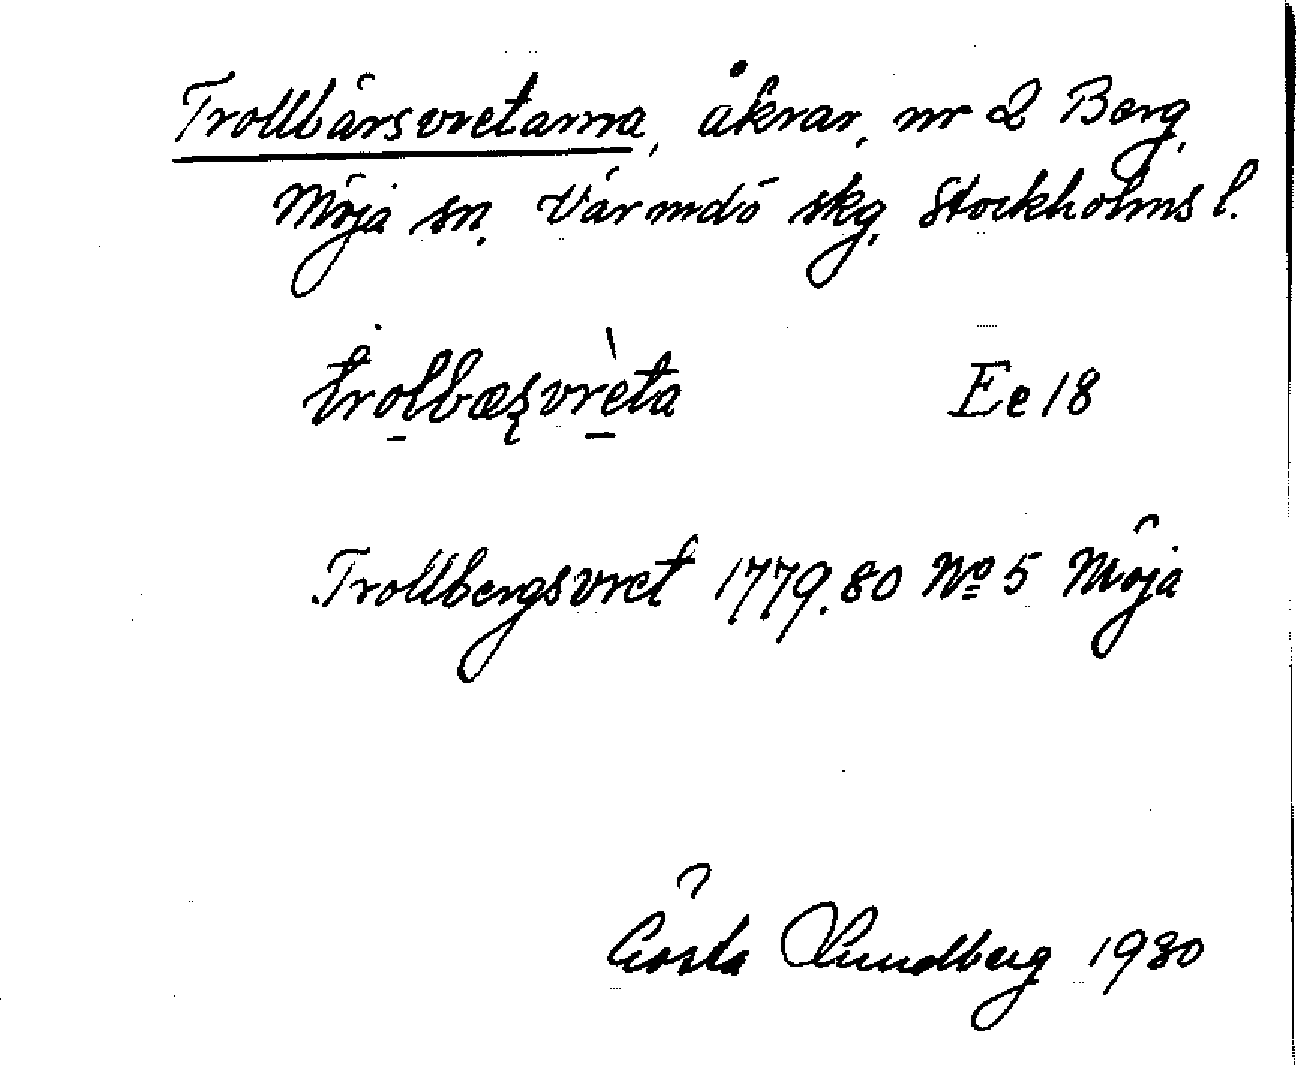 Trollbärsvretarna, åkrar, nr 2 Berg,
Möja sn, Värmdö skg, Stockholms l.
trolbæʂvrèta Ee 18
Trollbergsvret 1779.80 Nº 5 Möja
Gösta Lundberg 1930